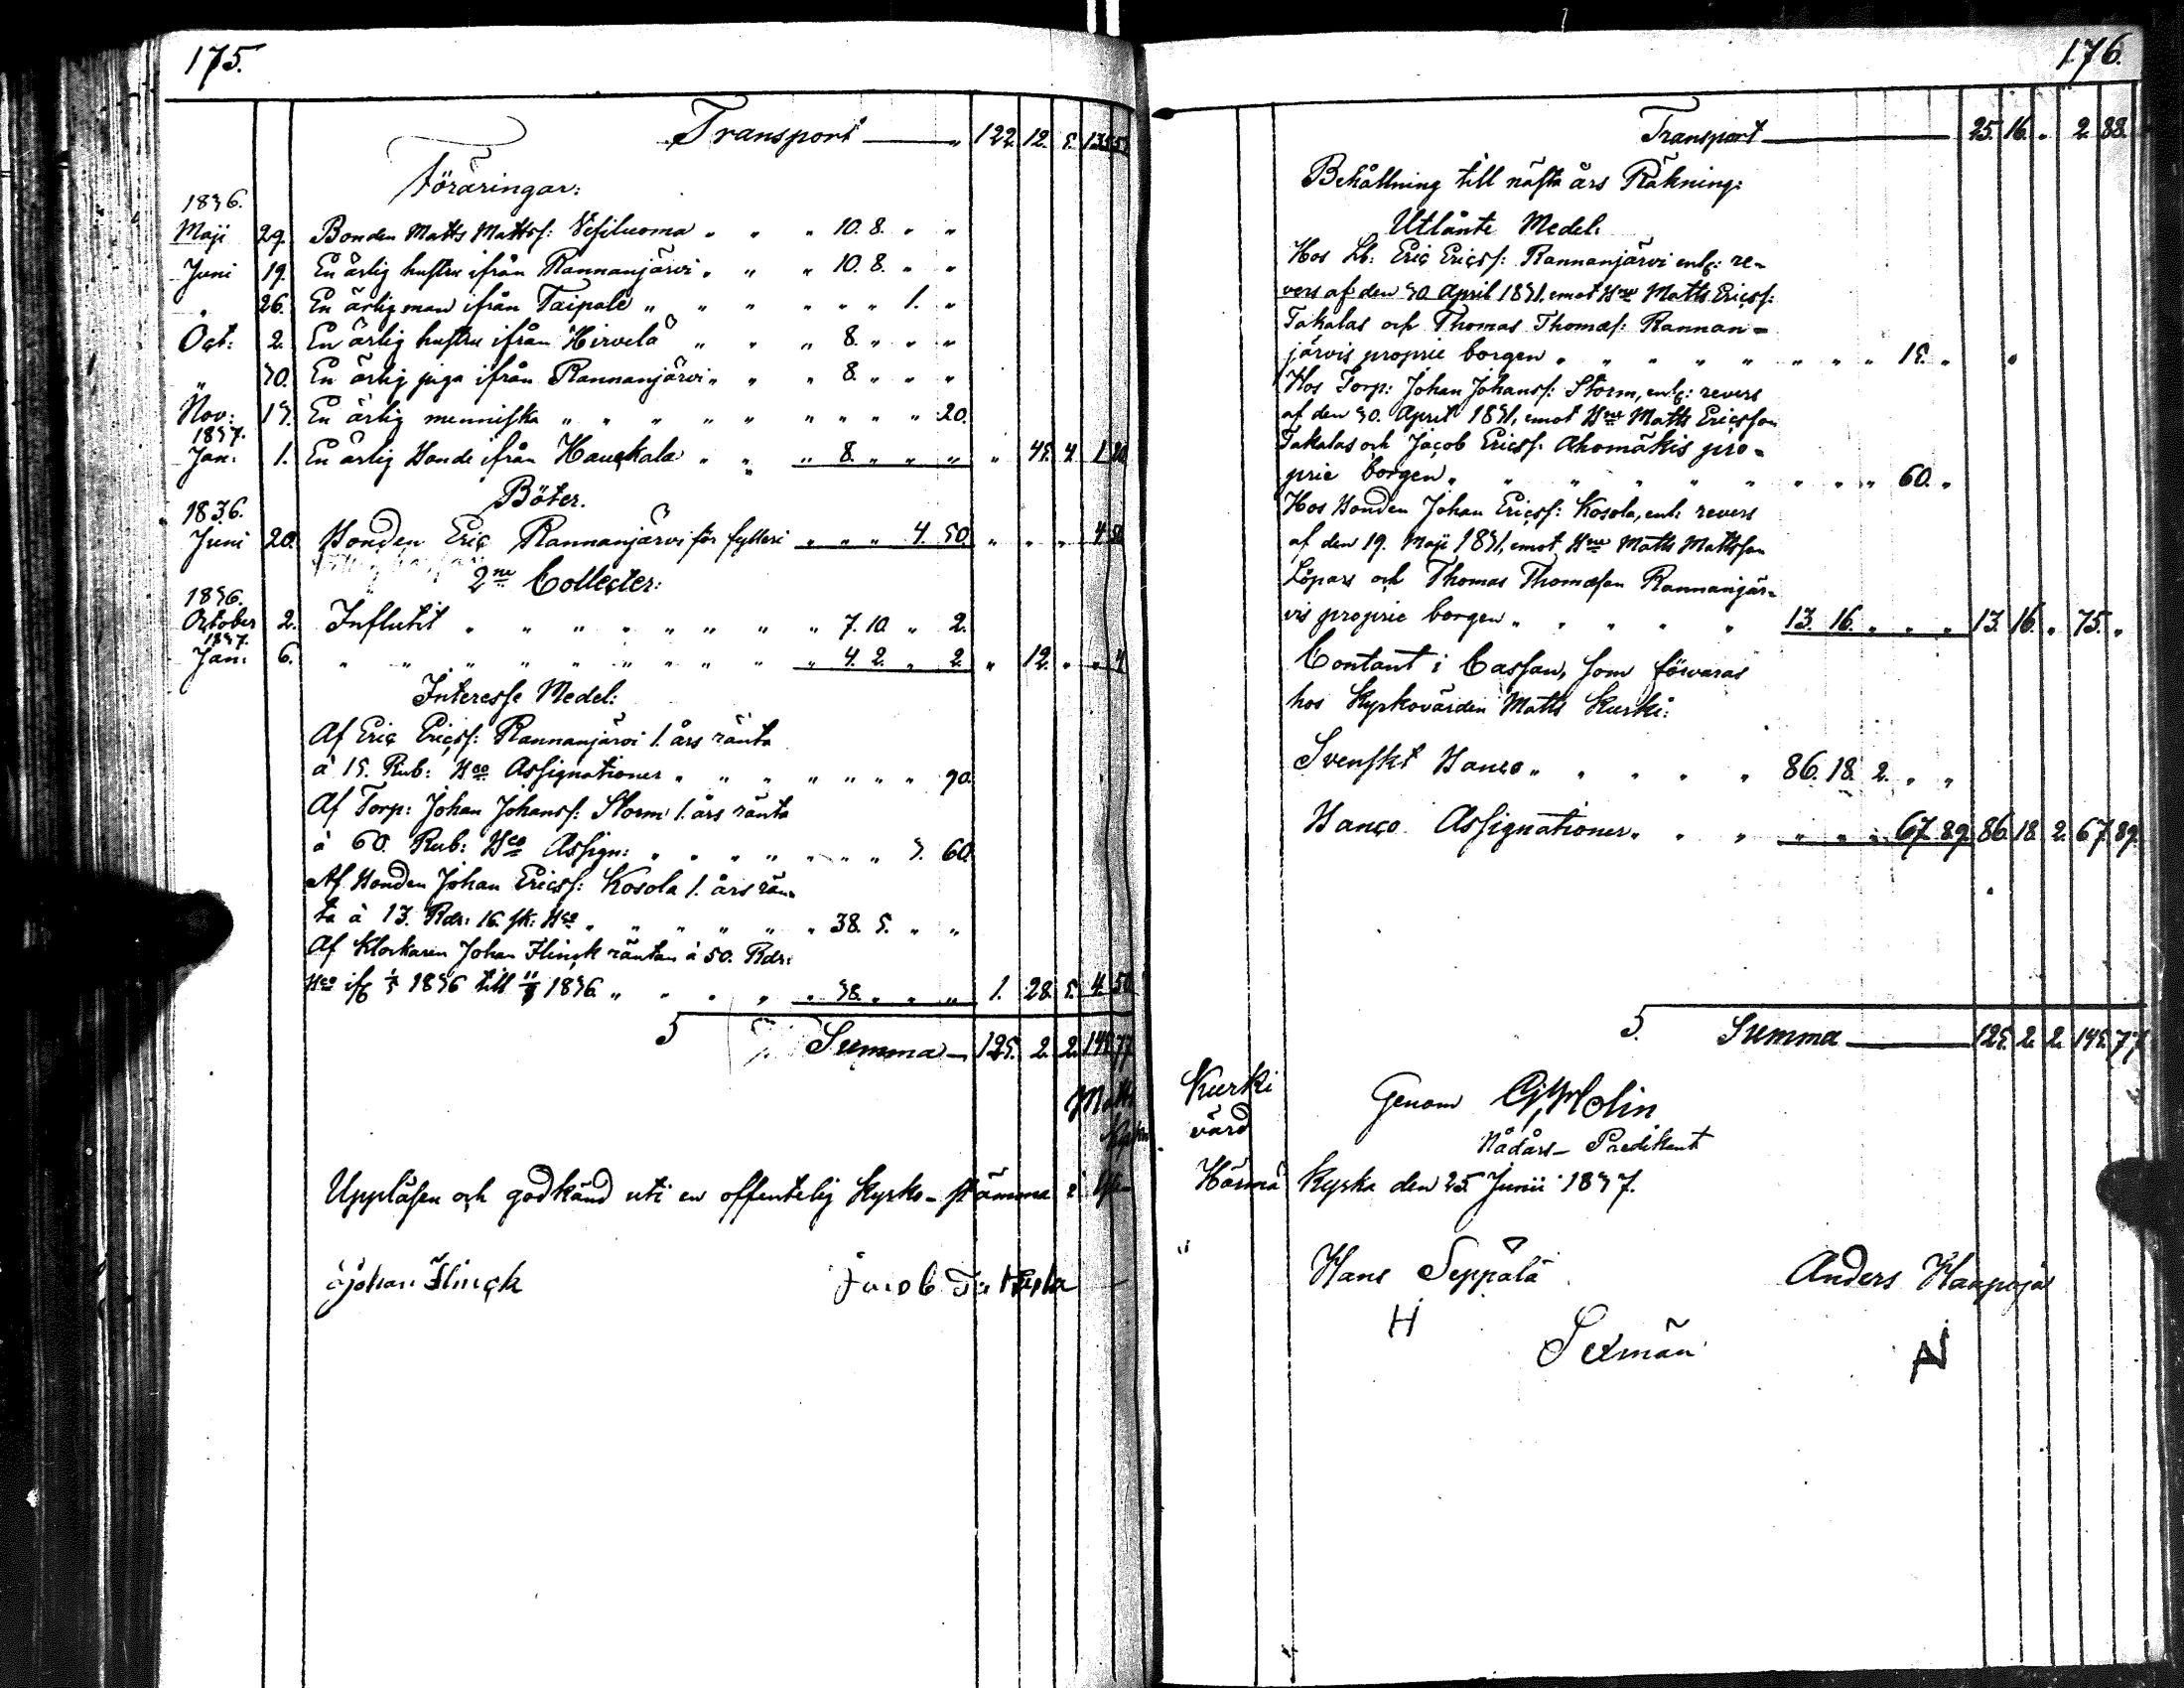 175.
Transport — " 122. 12. 5. 135 53
Föräringar:
1836.
Maji 29. Bonden Matts Mattss: Vesiluoma " " " 10. 8. " "
Juni 19. En ärlig hustru ifrån Rannanjärvi " " " 10. 8. " "
" 26. En ärlig man ifrån Taipale " " " " " " 1. "
Oct: 2. En ärlig hustru ifrån Hirvelä " " " 8. " " "
" 30. En ärlig piga ifrån Rannanjärvi " " " 8. " " "
Nov: 13. En ärlig menniska " " " " " " " " " 20.
1837.
Jan: 1. En ärlig Bonde ifrån Hauckala " " " 8. " " " " 45. 4. 1 20
Böter.
1836.
Juni 20. Bonden Eric Rannanjärvi för fylleri " " " 4. 50. " " " 4. 50
2ne Collecter:
1836.
October 2. Influtit " " " " " " " " 7. 10. " 2.
1837.
Jan: 6. " " " " " " " " " " 4. 2. " 2. " 12. " " 4
Interesse Medel:
Af Eric Ericss: Rannanjärvi 1. års ränta
à 15. Rub: Bco Assignationer " " " " " " " 90.
Af Torp: Johan Johanss: Storm 1. års ränta
à 60. Rub: Bco Assign: " " " " " " " 3. 60.
Af Bonden Johan Ericss: Kosola 1. års rän-
ta à 13. Rdr: 16. sk: Bco " " " " " " 38. 5. " "
Af Klockaren Johan Flinck räntan à 50. Rdr:
Bco 1836 till 1836 " " " " " 38. " " " 1. 28. 5. 4. 50
Summa — 125. 2. 2. 145 77
Matts Kurki
Kyrko värd
Uppläsen och godkänd uti en offentelig Kyrko-stämma i Härmä Kyrka den 25. Junii 1837.
Johan Flinck
Jacob
176.
Transport — 25. 16. " 2. 88.
Behållning till nästa års Räkning:
Utlånte Medel:
Hos Lb: Eric Ericss: Rannanjärvi enl: re-
vers af den 30 April 1831, emot Bne Matts Ericss:
Takalas och Thomas Thomæs: Rannan-
järvis proprie borgen " " " " " " " " 15. " "
Hos Torp: Johan Johanss: Storm, enl: revers
af den 30. April 1831, emot Bne Matts Ericsson
Takalas och Jacob Ericss: Ahomäkis pro-
prie borgen " " " " " " " " " 60. "
Hos Bonden Johan Ericss: Kosola, enl: revers
af den 19. Maji 1831, emot Bne Matts Mattsson
Löpars och Thomas Thomæson Rannanjär-
vis proprie borgen " " " " " 13. 16. " " " 13. 16. " 75. "
Contant i Cassan, som förvaras
hos Kyrkovärden Matts Kurki:
Svenskt Banco " " " " " 86. 18. 2. " "
Banco Assignationer " " " " " " 67. 89. 86. 18. 2. 67. 89.
Summa — 125. 2. 2. 145. 77.
Genom Molin
Nådårs-Predikant
Hans Seppälä Anders Haapoja
H
Sexmän